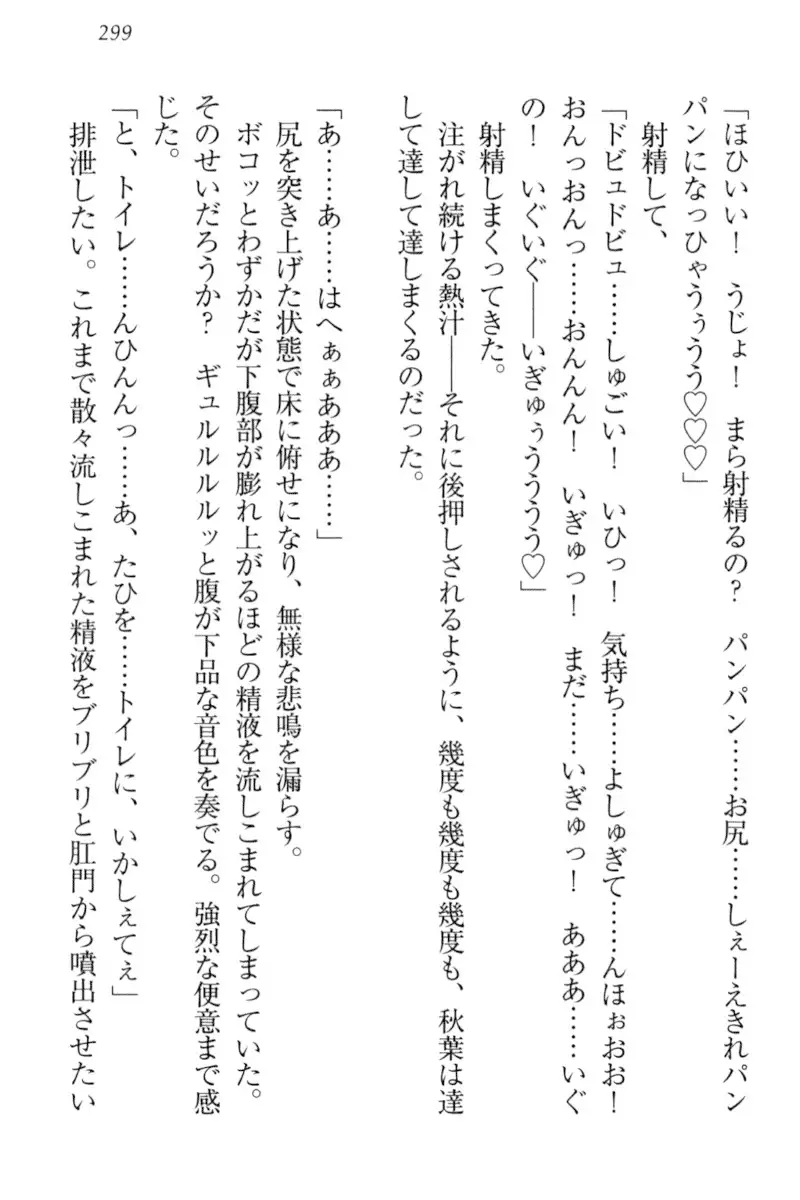 299
「ほひいい！　うじょ！　まら射精るの？　パンパン……お尻……しぇーえきれパン
パンになっひゃうぅうう♡♡♡」
射精して、
「ドビュドビュ……しゅごい！　いひっ！　気持ち……よしゅぎて……んほぉおお！
おんっおんっ……おんんん！　いぎゅっ！　まだ……いぎゅっ！　あああ……いぐ
の！　いぐいぐ――いぎゅぅうううう♡」
射精しまくってきた。
注がれ続ける熱汁――それに後押しされるように、幾度も幾度も幾度も、秋葉は達
して達して達しまくるのだった。
「あ……あ……はへぁぁあああ……」
尻を突き上げた状態で床に俯せになり、無様な悲鳴を漏らす。
ボコッとわずかだが下腹部が膨れ上がるほどの精液を流しこまれてしまっていた。
そのせいだろうか？　ギュルルルルッと腹が下品な音色を奏でる。強烈な便意まで感
じた。
「と、トイレ……んひんんっ……あ、たひを……トイレに、いかしぇてぇ」
排泄したい。これまで散々流しこまれた精液をブリブリと肛門から噴出させたい